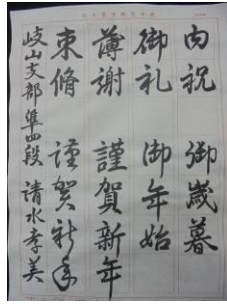 内祝 御歳暮
御礼 御年始
薄謝 謹賀新年
束脩 謹賀新年
岐山支部 準四段 清水孝美